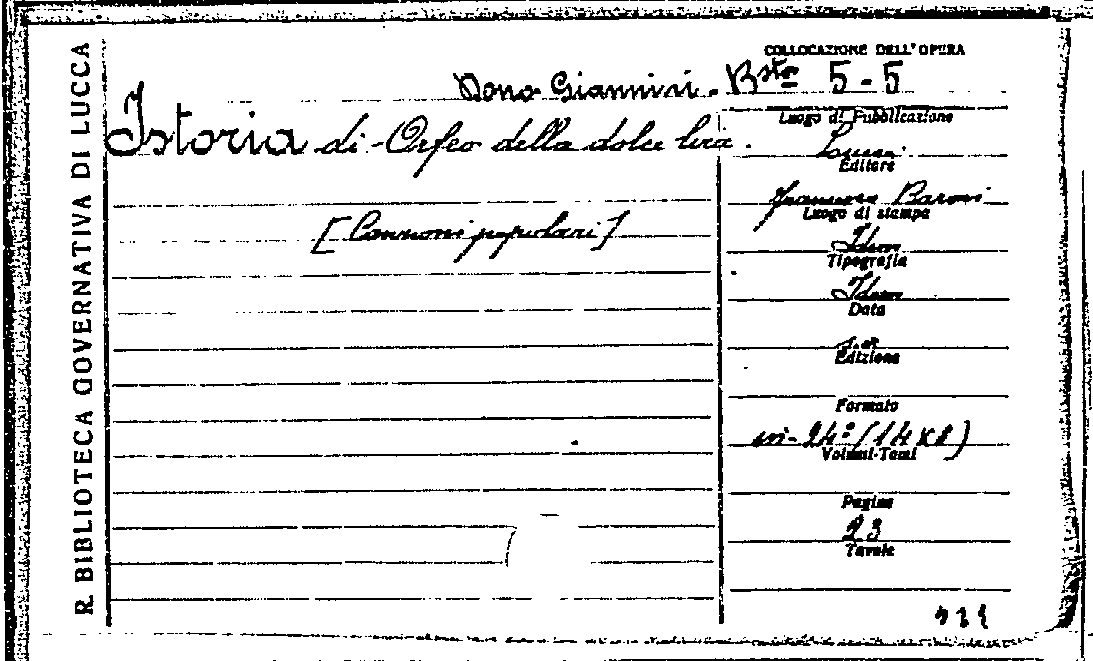 R. BIBLIOTECA GOVERNATIVA DI LUCCA
COLLOCAZIONE DELL'OPERA
Dono Giannini. Bsta 5-5
Luogo di Pubblicazione
Istoria di Orfeo della dolce lira.
Lucca
Editore
Francesco Baroni
Luogo di stampa
[Canzoni popolari]
Idem
Tipografia
Idem
Data
s.a.
Edizione
Formato
in-24º (14x8)
Volumi-Tomi
Pagine
23
Tavole